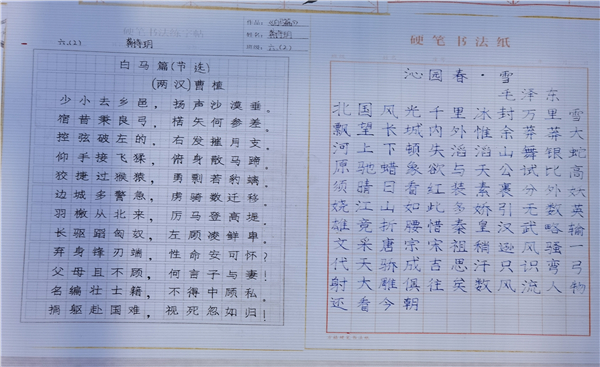 六.(2)
作品:
姓名:
班级: 六.(2)
白马篇(节选)
(两汉)曹植
少小去乡邑，扬声沙漠垂。
宿昔秉良弓，楛矢何参差。
控弦破左的，右发摧月支。
仰手接飞猱，俯身散马蹄。
狡捷过猴猿，勇剽若豹螭。
边城多警急，虏骑数迁移。
羽檄从北来，厉马登高堤。
长驱蹈匈奴，左顾凌鲜卑。
弃身锋刃端，性命安可怀?
父母且不顾，何言子与妻!
名编壮士籍，不得中顾私。
捐躯赴国难，视死忽如归!
硬笔书法纸
沁园春·雪
毛泽东
北国风光千里冰封万里雪
飘望长城内外惟余莽莽大
河上下顿失滔滔山舞银蛇
原驰蜡象欲与天公试比高
须晴日看红装素裹分外妖
娆江山如此多娇引无数英
雄竟折腰惜秦皇汉武略输
文采唐宗宋祖稍逊风骚一
代天骄成吉思汗只识弯弓
射大雕俱往矣数风流人物
还看今朝